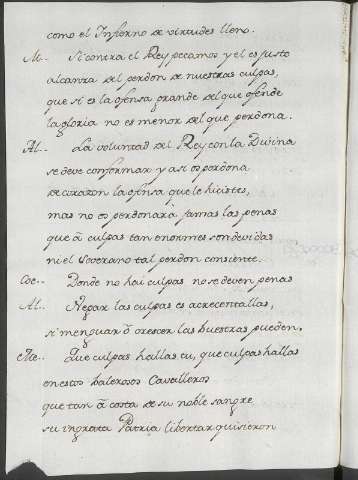 como el Infierno de virtudes lleno.
M.. Si contra el Rey pecamos y el es justo
alcanza del perdon de nuestras culpas,
que si es la ofensa grande del que ofende
la gloria no es menor del que perdona.
Al.. La voluntad del Rey con la Divina
se deve conformar y asi os perdona
de corazon la ofensa que le hicistes,
mas no os perdonará jamas las penas
que á culpas tan enormes son devidas
ni el Soverano tal perdon consiente.
Coe.. Donde no hai culpas no se deven penas
Al.. Negar las culpas es acrecentallas,
si menguar ó crescer las buestras pueden.
Me.. Que culpas hallas tu, que culpas hallas
en estos balerosos Cavalleros
que tan á costa de su noble sangre
su ingrata Patria libertar quisieron